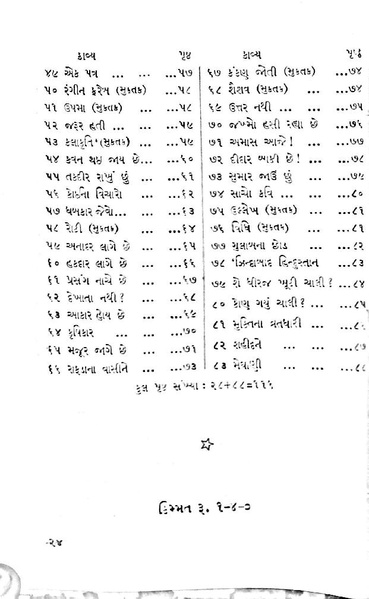 કાવ્ય પૃષ્ઠ
૪૯ એક પત્ર ... ... ...૫૭
૫૦ રંગીન ફરેબ (મુક્તક) ...૫૮
૫૧ ઉપમા (મુક્તક) ...૫૮
૫૨ જરૂર હતી ... ...૫૯
૫૩ કલાકૃતિ (મુક્તક) ...૫૯
૫૪ કવન થઇ જાય છે ...૬૦
૫૫ તકદીર રાખું છું ...૬૧
૫૬ કોઈના વિચારો ...૬૨
૫૭ ધબકાર જેવો... ...૬૩
૫૮ રોટી (મુક્તક) ...૬૪
૫૯ અનાદર લાગે છે ...૬૫
૬૦ હકદાર લાગે છે ...૬૬
૬૧ પ્રસંગ નાચે છે ...૬૭
૬૨ દેખાતા નથી? ...૬૮
૬૩ આકાર હોય છે ...૬૯
૬૪ કૃષિકાર ... ...૭૦
૬૫ મજૂર જાગે છે ...૭૧
૬૬ રાફડાના વાસીને ...૭૩
કાવ્ય પૃષ્ઠ
૬૭ કંકણ જોતી (મુક્તક) ...૭૪
૬૮ શૈશવ (મુક્તક) ...૭૪
૬૯ ઉત્તર નથી ... ...૭૫
૭૦ જખ્મો હસી રહ્યા છે ...૭૬
૭૧ અમાસ આજે! ...૭૭
૭૨ દીદાર બાકી છે! ...૭૮
૭૩ સુમાર જાઉં છું ...૭૯
૭૪ સાચો કવિ ... ...૮૦
૭૫ ઉલ્લેખ (મુક્તક) ...૮૧
૭૬ વિધિ (મુક્તક) ...૮૧
૭૭ ગુલાબના છોડ ...૮૨
૭૮ 'ઝિન્દાબાદ હિન્દુસ્તાન ...૮૩
૭૯ શે ધીરજ ખૂટી ચાલી? ...૮૪
૮૦ કોણ ગયું ચાલી? ...૮૫
૮૧ મુક્તિના વ્રતધારી ...૮૬
૮૨ શહીદને ... ...૮૭
૮૩ મેઘાણી ... ...૮૮
કુલ પૃષ્ઠ સંખ્યા : ૨૮+૮૮=૧૧૬
કિમ્મત રૂ. ૧-૮-૦
૨૪